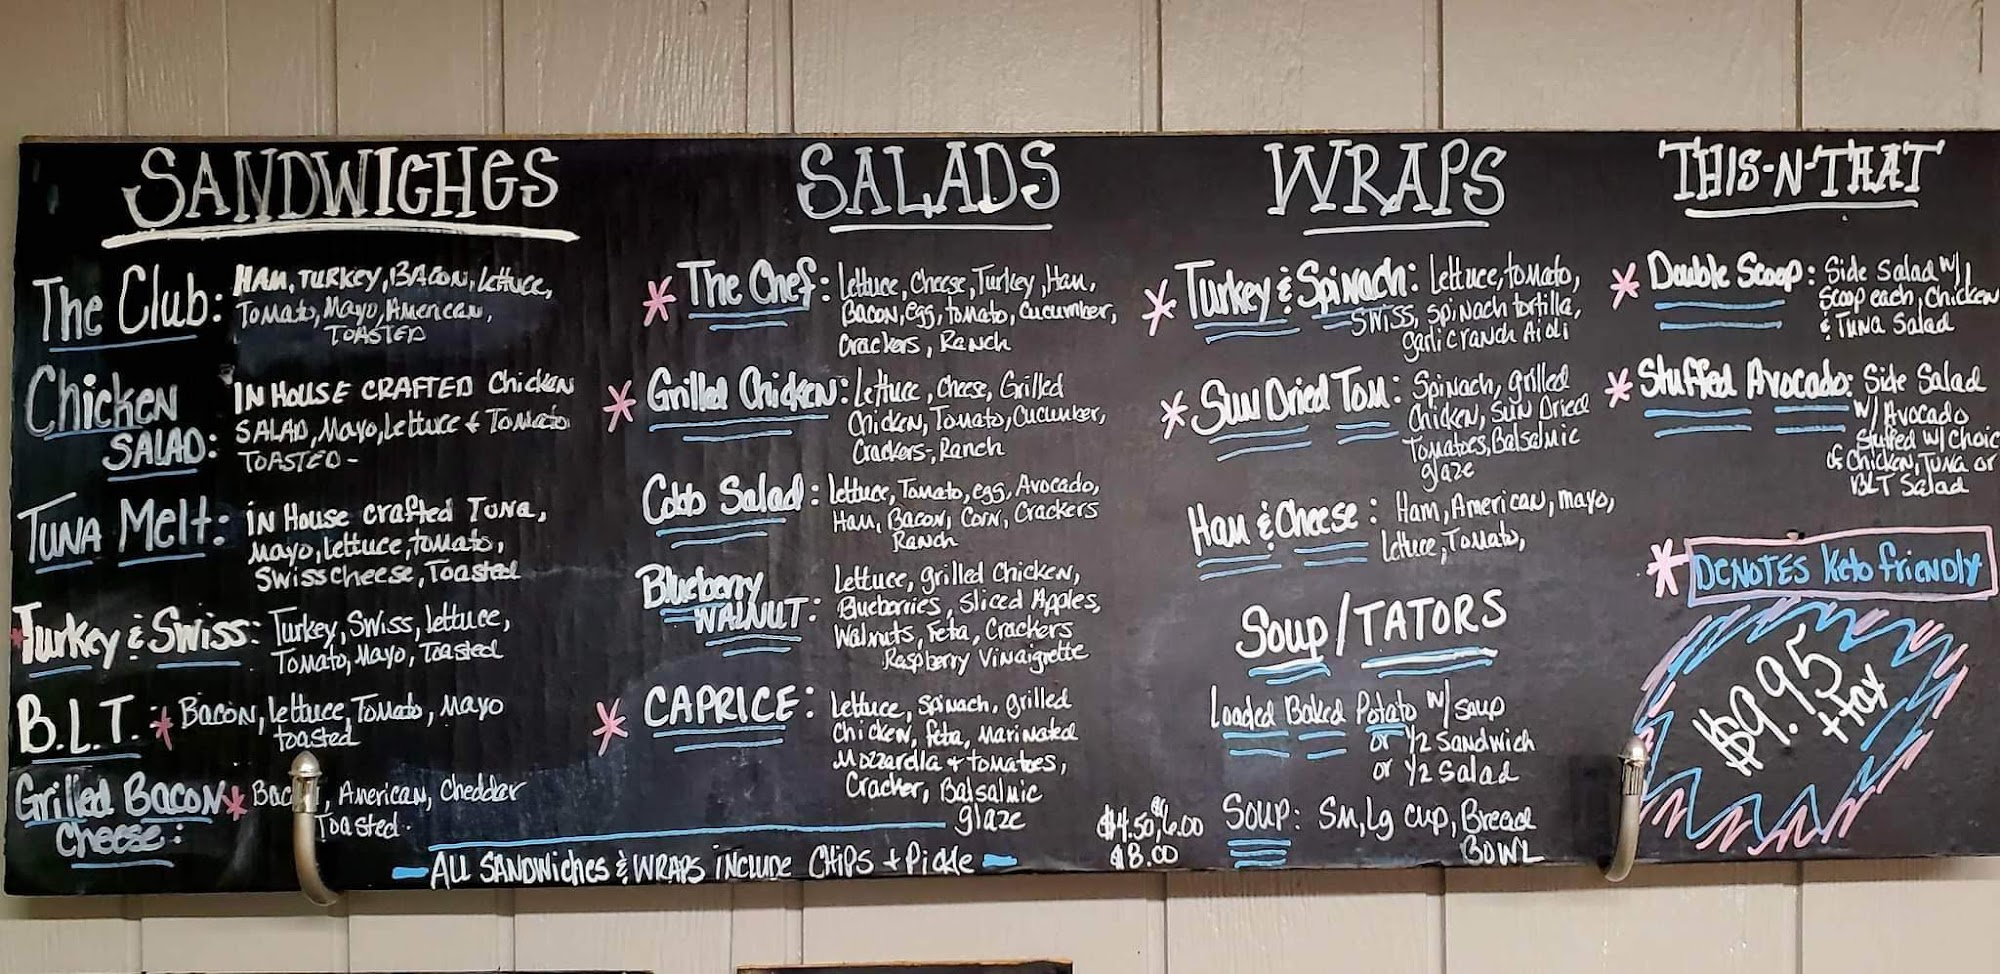 SANDWICHES
The Club: HAM, TURKEY, BACON, Lettuce,
Tomato, Mayo, American,
TOASTED
Chicken SALAD: IN HOUSE CRAFTED Chicken
SALAD, Mayo, Lettuce + Tomato
TOASTED -
TUNA Melt: IN House crafted Tuna,
Mayo, lettuce, tomato,
Swiss cheese, Toasted
* Turkey & Swiss: Turkey, Swiss, lettuce,
Tomato, Mayo, Toasted
B.L.T. * Bacon, lettuce, Tomato, Mayo
toasted
Grilled Bacon * Bacon, American, Cheddar
Cheese: Toasted.
SALADS
* The Chef: Lettuce, Cheese, Turkey, Ham,
Bacon, egg, tomato, Cucumber,
Crackers, Ranch
* Grilled Chicken: Lettuce, cheese, Grilled
Chicken, Tomato, Cucumber,
Crackers, Ranch
Cobb Salad: lettuce, Tomato, egg, Avocado,
Ham, Bacon, Corn, Crackers
Ranch
Blueberry WALNUT: Lettuce, grilled Chicken,
Blueberries, Sliced Apples,
Walnuts, Feta, Crackers
Raspberry Vinaigrette
* CAPRICE: Lettuce, Spinach, grilled
Chicken, Feta, Marinated
Mozzarella + tomatoes,
Cracker, Balsalmic
glaze
ALL SANDWiches & WRAPS INCLUDE CHIPS + Pickle
WRAPS
* Turkey & Spinach: Lettuce, tomato,
Swiss, Spinach tortilla,
garlic ranch Aioli
* Sun Dried Tom: Spinach, grilled
Chicken, Sun Dried
Tomatoes, Balsalmic
glaze
Ham & Cheese: Ham, American, mayo,
Lettuce, Tomato,
Soup/TATORS
Loaded Baked Potato w/ soup
or 1/2 Sandwich
or 1/2 Salad
$4.50, $6.00 SOUP: Sm, Lg cup, Bread
$8.00 BOWL
THIS-N-THAT
* Double Scoop: Side Salad w/ 1
Scoop each, Chicken
& Tuna Salad
* Stuffed Avocado: Side Salad
w/ Avocado
Stuffed w/ Choic
of Chicken, Tuna or
BLT Salad
* DENOTES Keto friendly
$9.95
+ tax